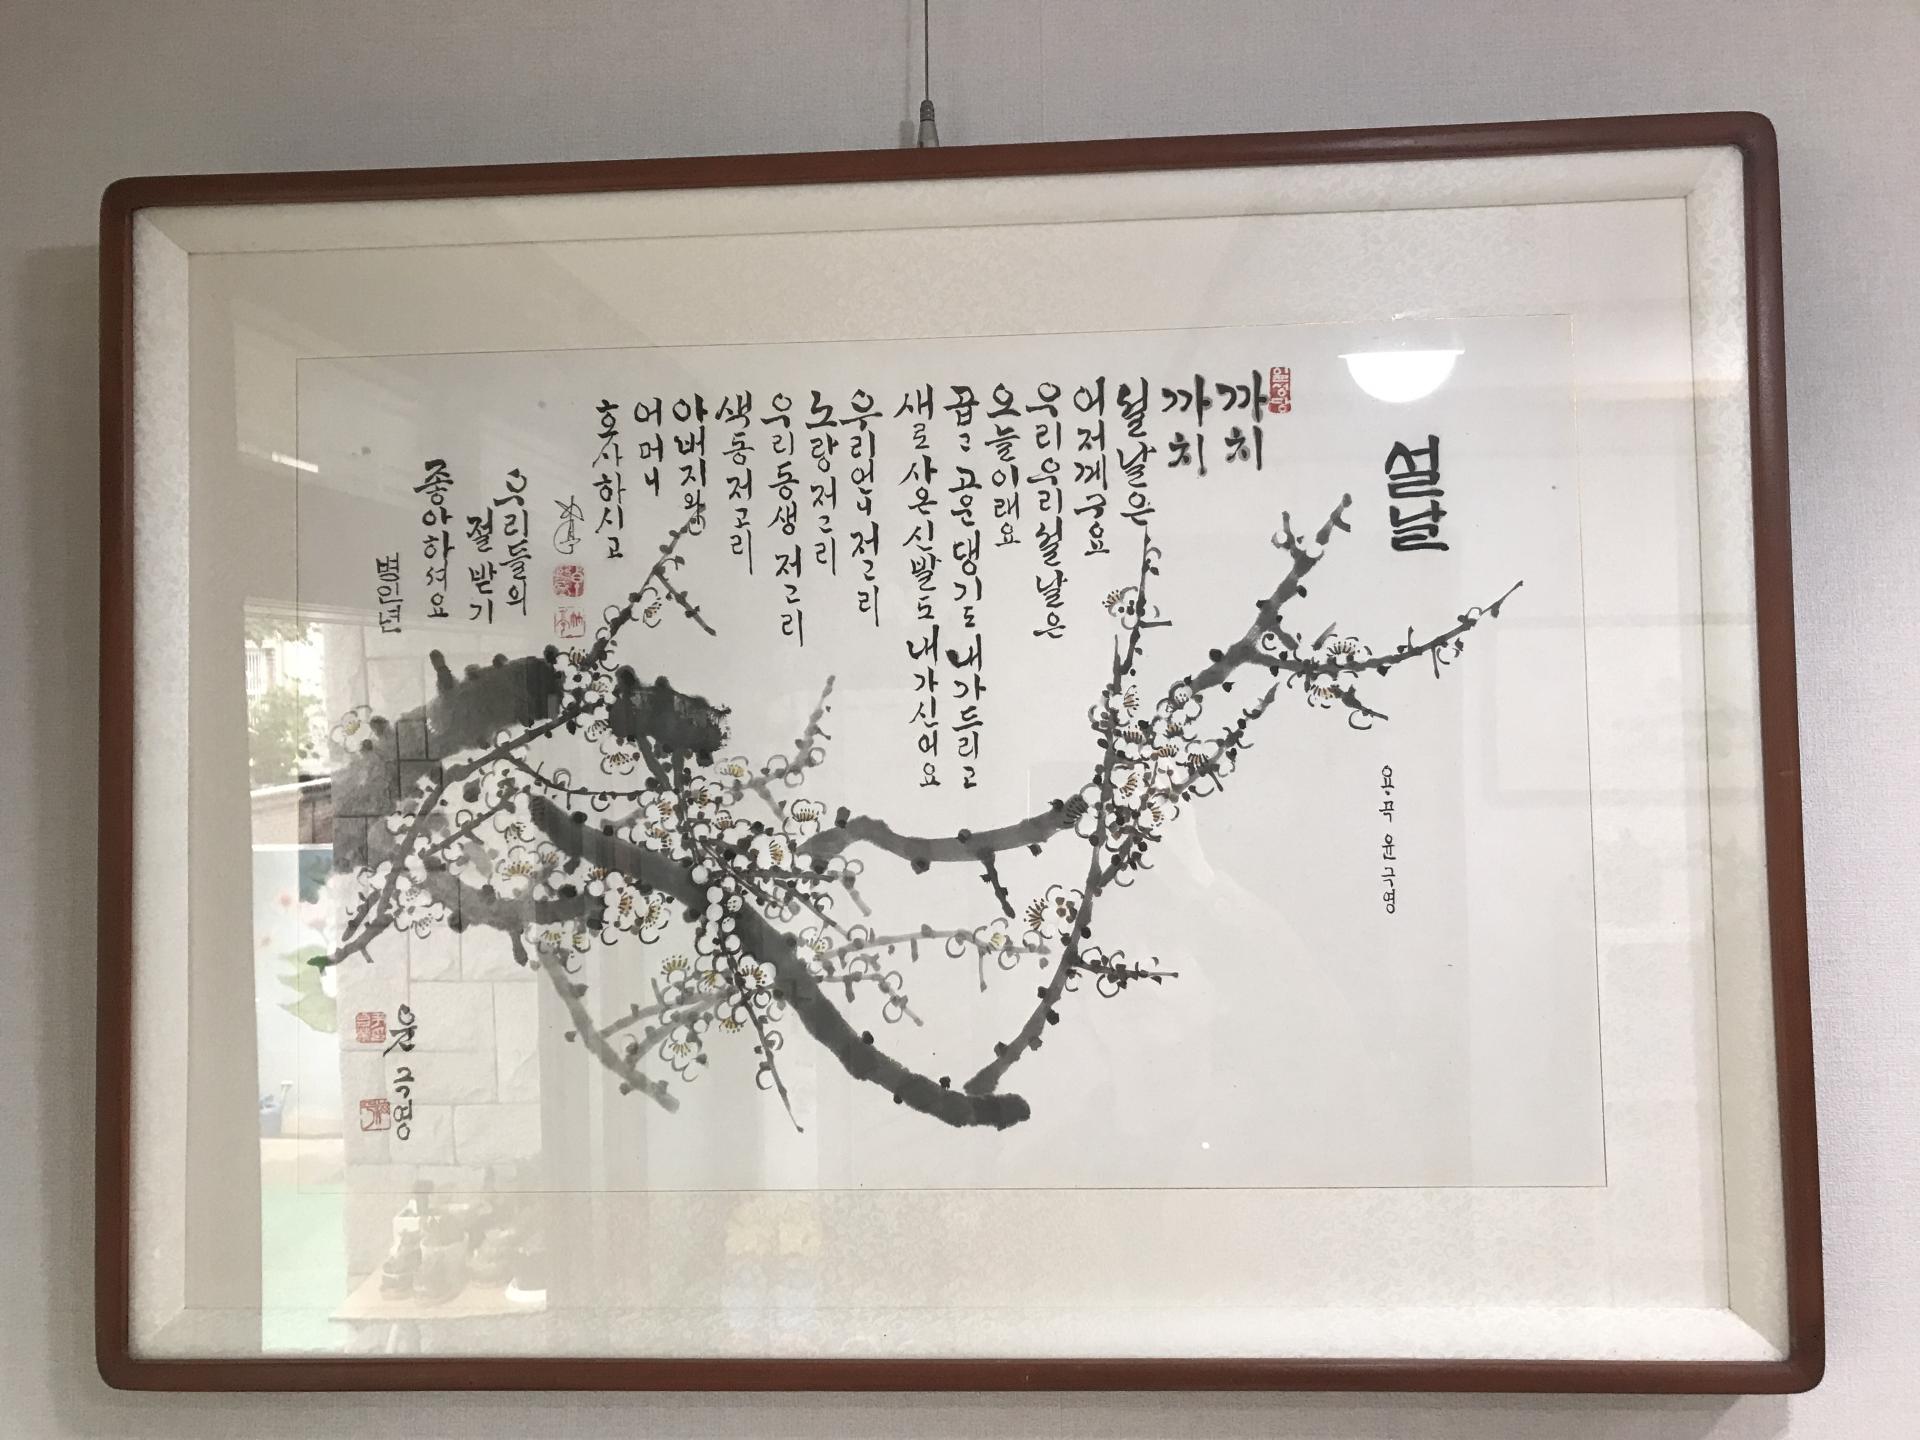 설날
요·곡 윤극영
까치
까치
설날은
어저께구요
우리우리설날은
오늘이래요
곱고고운댕기도내가드리고
새로사온신발도내가신어요
우리언니저고리
노랑저고리
우리동생저고리
색동저고리
아버지와
어머니
호사하시고
우리들의
절받기
좋아하셔요
병인년
윤극영